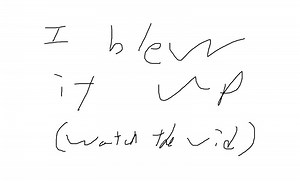 I blew
it up
(watch the vid)